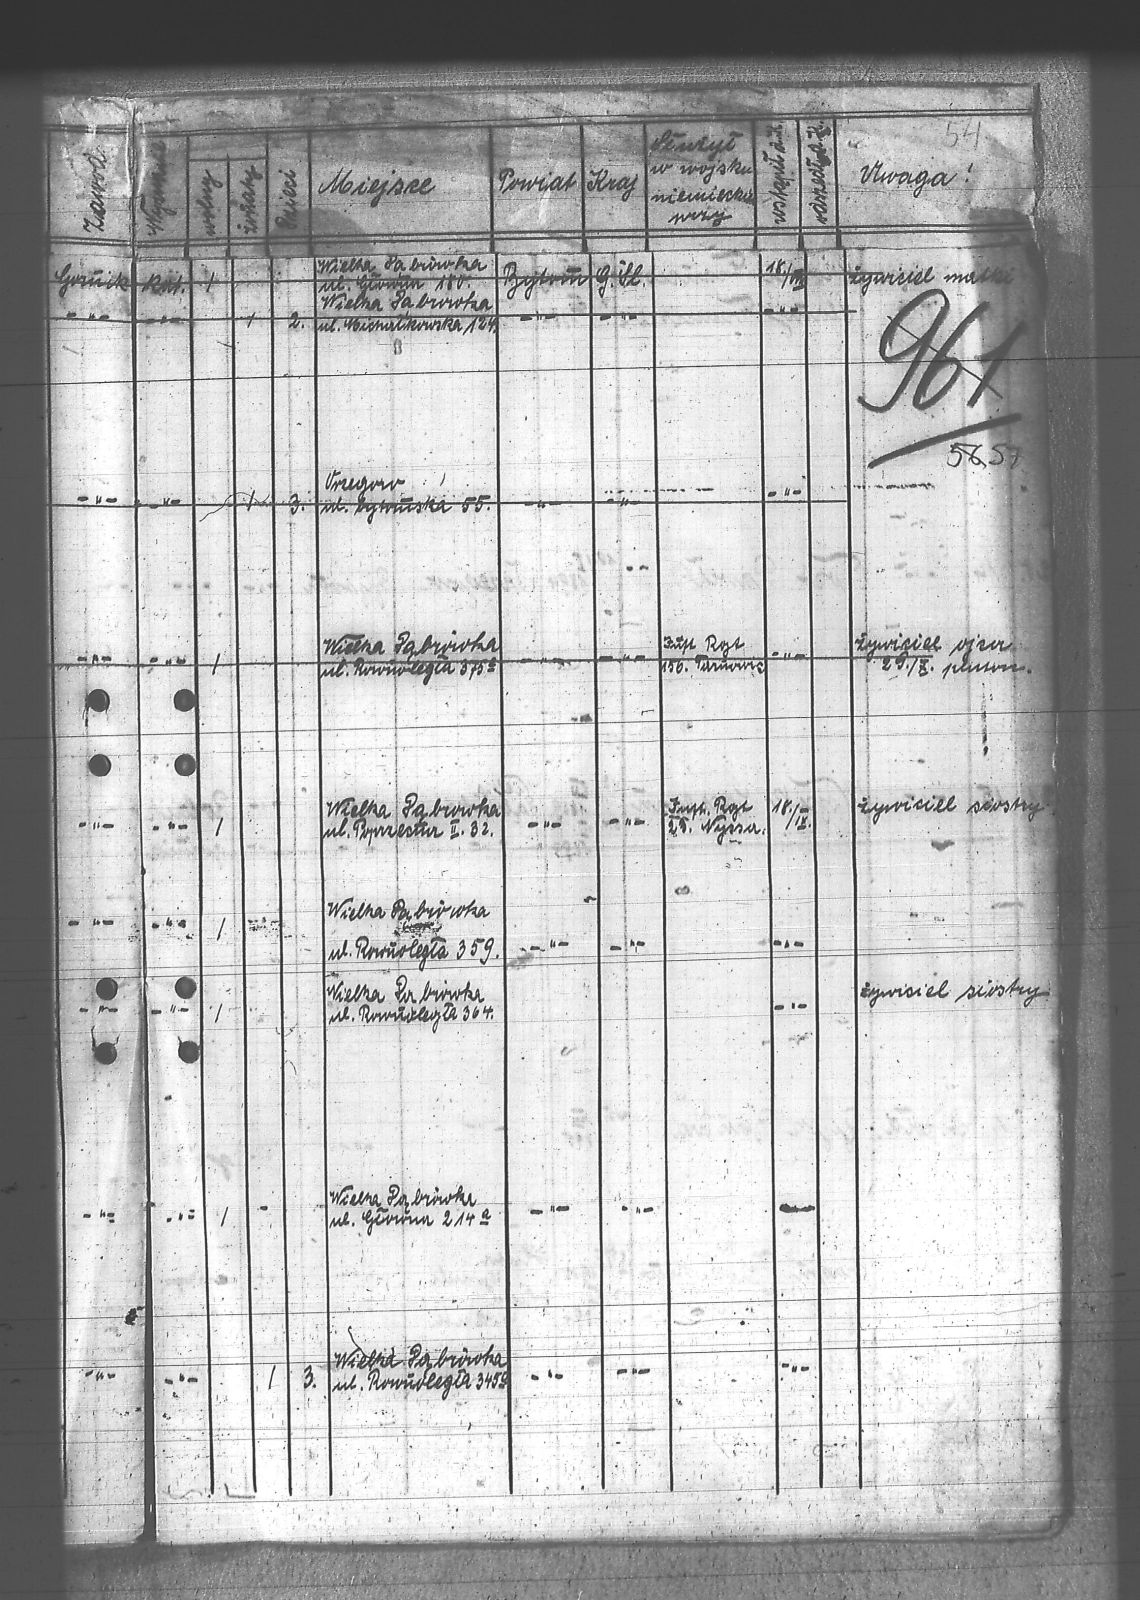 54
Zawód Wyznanie wolny żonaty Dzieci Miejsce Powiat Kraj Służył w wojsku niemieckim przy wstąpił d. Uwaga!
Górnik kat. 1 Wielka Dąbrówka
ul. Główna 180. Bytom G. Śl. 18./VIII żywiciel matki
-"- -"- 1 2. Wielka Dąbrówka
ul. Michałkowska 124. -"- -"- -"-
961
56 57
-"- -"- 1 3. Orzegow
ul. Bytomska 55. -"- -"- -"-
-"- -"- 1 Wielka Dąbrówka
ul. Rownoległa 375a -"- -"- Inft Rgt
156. -"- żywiciel ojca
29./X.
-"- -"- 1 Wielka Dąbrówka
ul. Poprzeczna II. 32. -"- -"- Inft. Rgt
23. Nyssa. 18./IX. żywiciel siostry
-"- -"- 1 Wielka Dąbrówka
ul. Rownoległa 359. -"- -"- -"-
-"- -"- 1 Wielka Dąbrówka
ul. Rownoległa 364. -"- żywiciel siostry
-"- -"- 1 Wielka Dąbrówka
ul. Główna 214a -"- -"-
-"- -"- 1 3. Wielka Dąbrówka
ul. Rownoległa 345a -"- -"- -"-